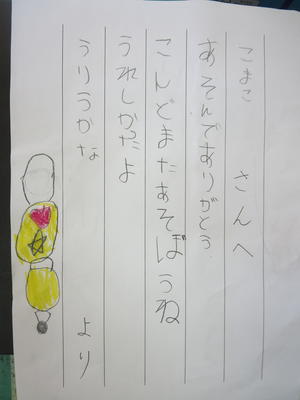 こまこ さんへ
あそんでありがとう
こんどまたあそぼうね
うれしかったよ
うりうかな より